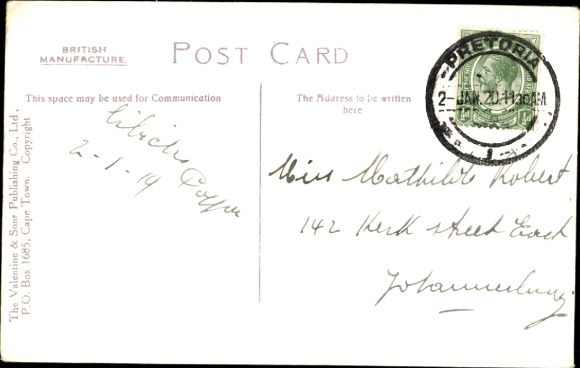 BRITISH
MANUFACTURE.
POST CARD
This space may be used for Communication
The Address to be written
here
2-1-19
Miss Mathilde Robert
142 Kerk street East
Johannesburg
PRETORIA
2-JAN.20.11 30AM
1
½d ½d
The Valentine & Sons Publishing Co., Ltd.,
P.O. Box 1685, Cape Town. Copyright